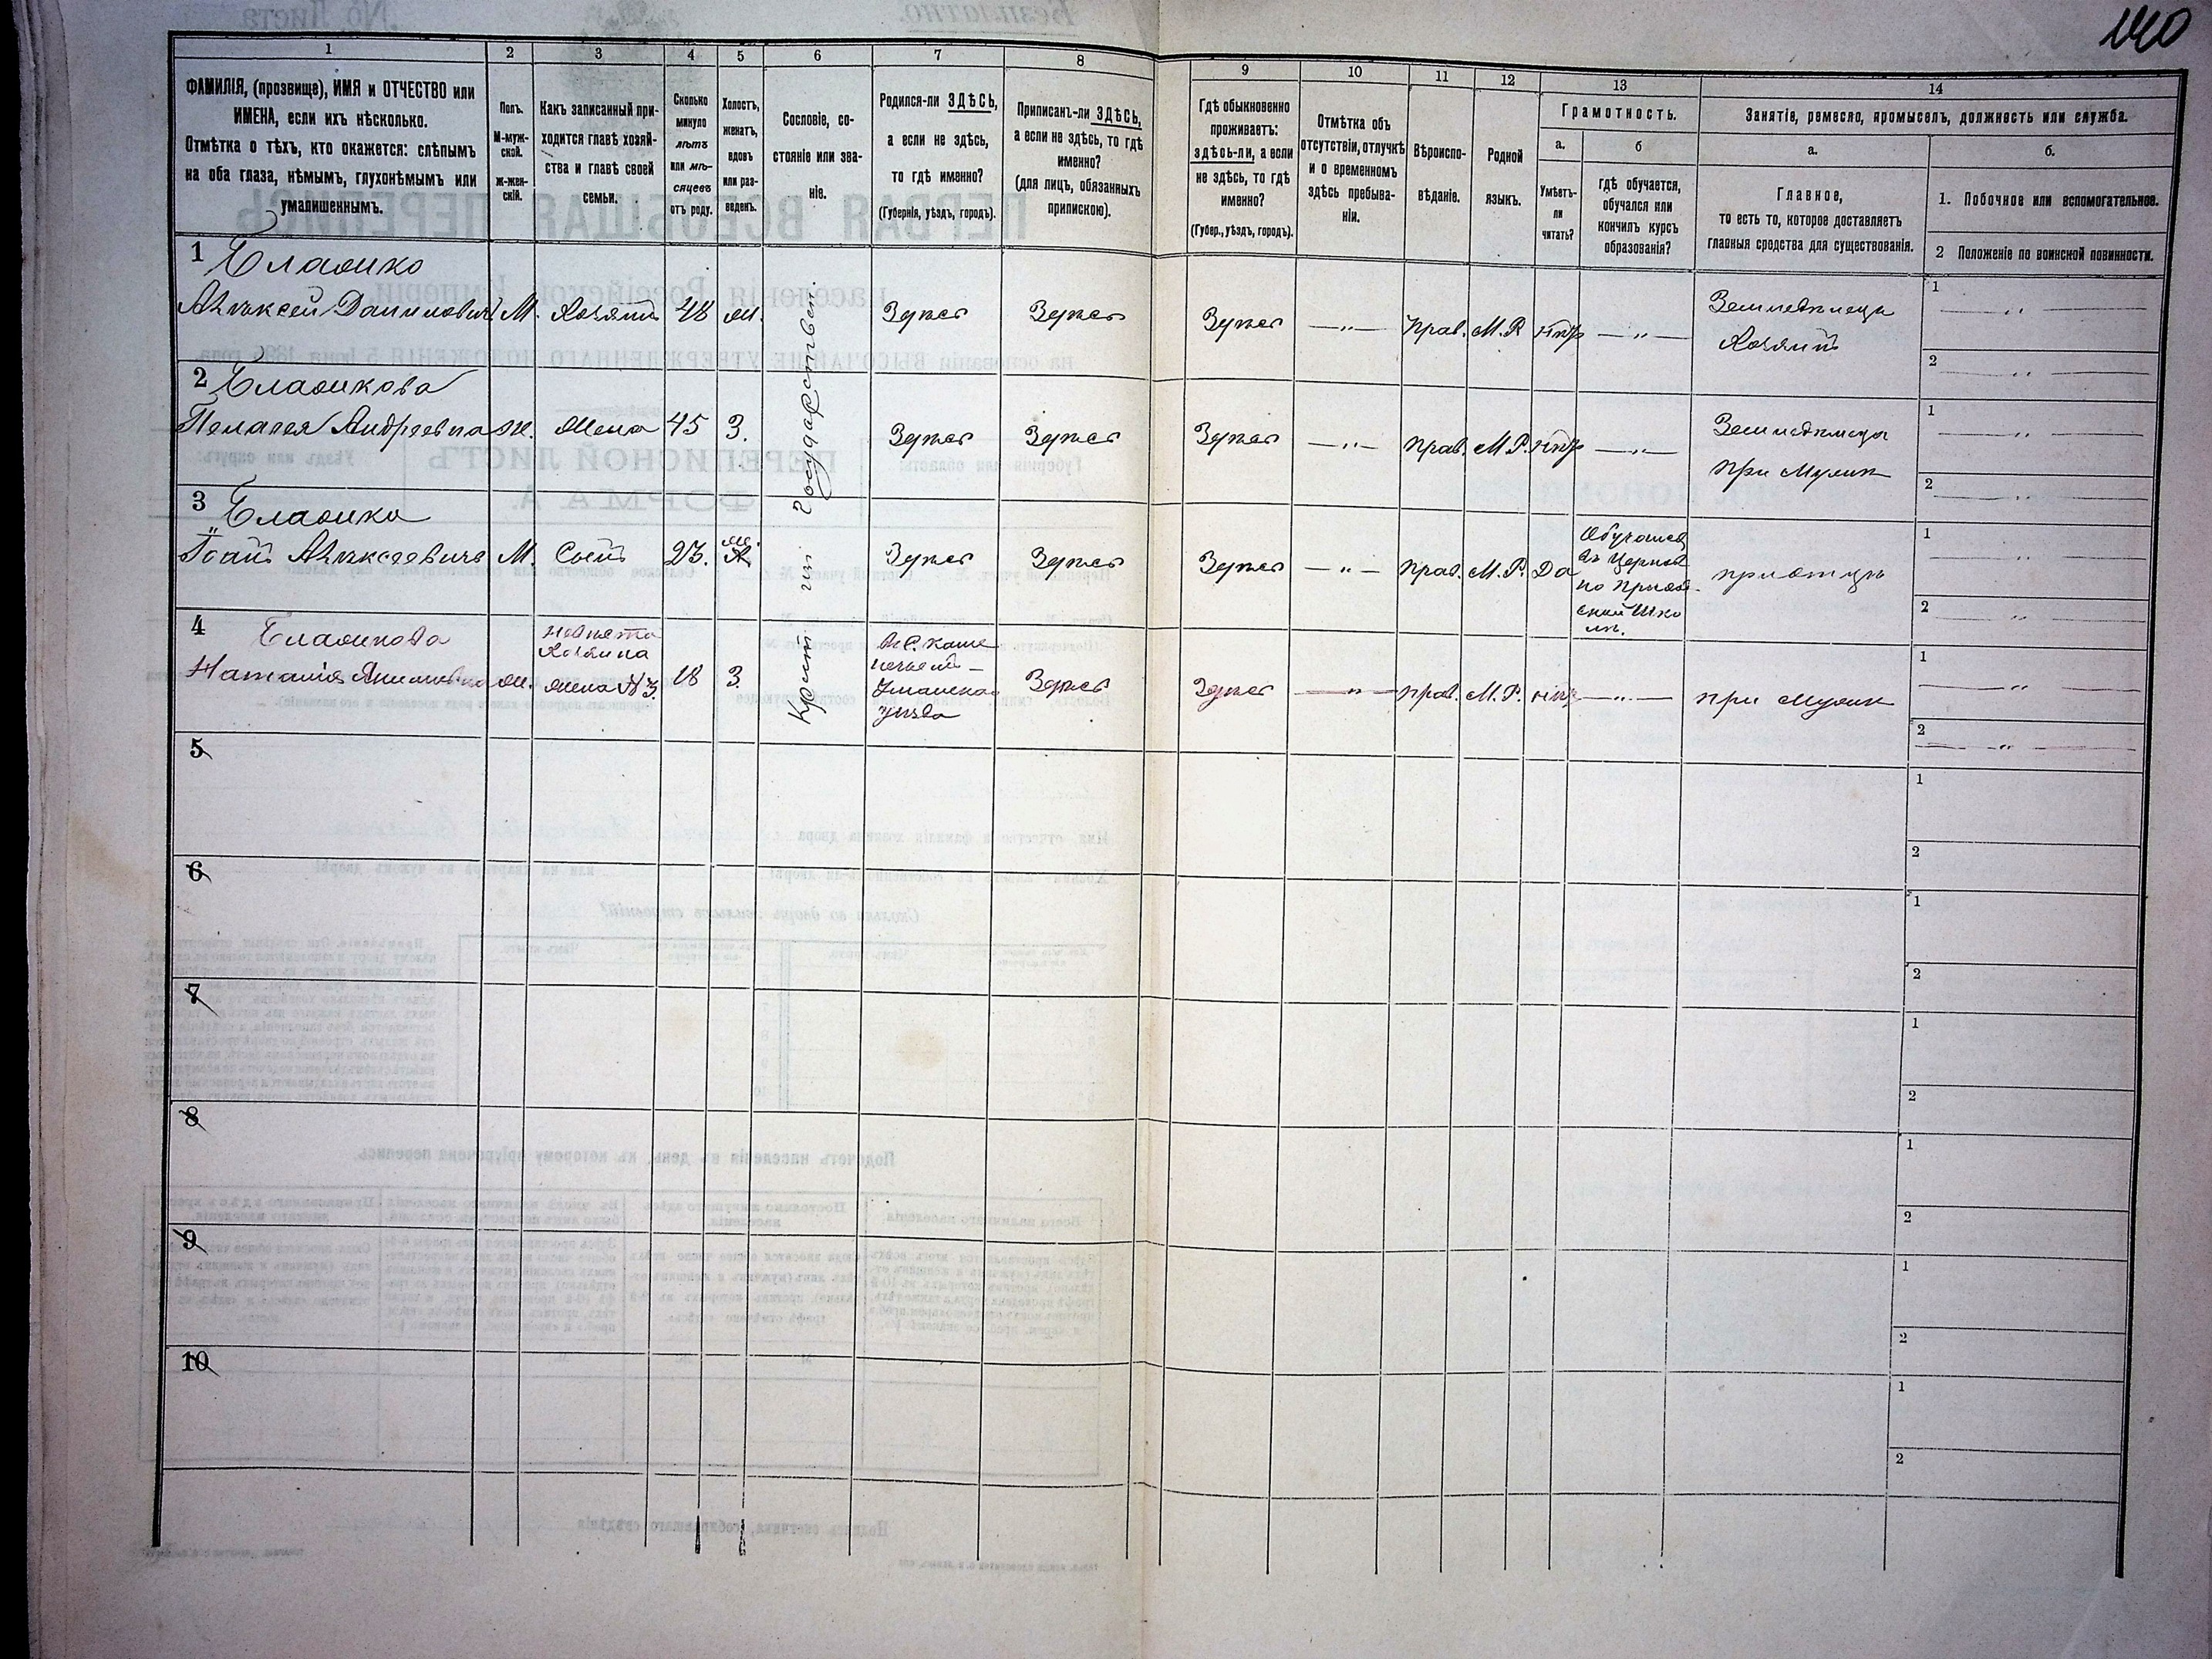 140
1
2
3
4
5
6
7
8
9
10
11
12
13
14
ФАМИЛІЯ, (прозвище), ИМЯ и ОТЧЕСТВО или
ИМЕНА, если ихъ нѣсколько.
Отмѣтка о тѣхъ, кто окажется: слѣпымъ
на оба глаза, нѣмымъ, глухонѣмымъ или
умалишеннымъ.
Полъ.
М-муж-
ской.
ж-жен-
скій.
Какъ записанный при-
ходится главѣ хозяй-
ства и главѣ своей
семьи.
Сколько
минуло
лѣтъ
или мѣ-
сяцевъ
отъ роду.
Холостъ,
женатъ,
вдовъ
или раз-
веденъ.
Сословіе, со-
стояніе или зва-
ніе.
Родился-ли ЗДѢСЬ,
а если не здѣсь,
то гдѣ именно?
(Губернія, уѣздъ, городъ).
Приписанъ-ли ЗДѢСЬ,
а если не здѣсь, то гдѣ
именно?
(для лицъ, обязанныхъ
припискою).
Гдѣ обыкновенно
проживаетъ:
здѣсь-ли, а если
не здѣсь, то гдѣ
именно?
(Губер., уѣздъ, городъ).
Отмѣтка объ
отсутствіи, отлучкѣ
и о временномъ
здѣсь пребыва-
ніи.
Вѣроиспо-
вѣданіе.
Родной
языкъ.
Грамотность.
а.
Умѣетъ-
ли
читать?
б
гдѣ обучается,
обучался или
кончилъ курсъ
образованія?
Занятіе, ремесло, промыселъ, должность или служба.
а.
Главное,
то есть то, которое доставляетъ
главныя средства для существованія.
б.
1. Побочное или вспомогательное.
2 Положеніе по воинской повинности.
1
Алѣксей Даниловичъ М. Хозяинъ 48 ж. Здѣсь Здѣсь Здѣсь —"— Прав. М.Р. нѣтъ —"—
Земледѣлецъ
Хозяинъ
1 — " —
2 — " —
2
Пелагея Андреевна ж. Жена 45 З. Здѣсь Здѣсь Здѣсь —"— Прав. М.Р. нѣтъ —"—
при Мужѣ
1 — " —
2 — " —
3
Іоанъ Алѣксѣевичъ М. Сынъ 23. Здѣсь Здѣсь Здѣсь —"— Прав. М.Р. Да
Обучался
въ Церков
но Приход-
ской Шко
лѣ.
при отцѣ
1 — " —
2 — " —
4
Невѣста
Хозяина
жена №3.
18 З.
Уманска
уѣзда
Здѣсь Здѣсь —"— Прав. М.Р. нѣтъ —"— при Мужѣ
1 — " —
2 — " —
Крестьяне Государствен.
5
1
2
6
1
2
7
1
2
8
1
2
9
1
2
10
1
2